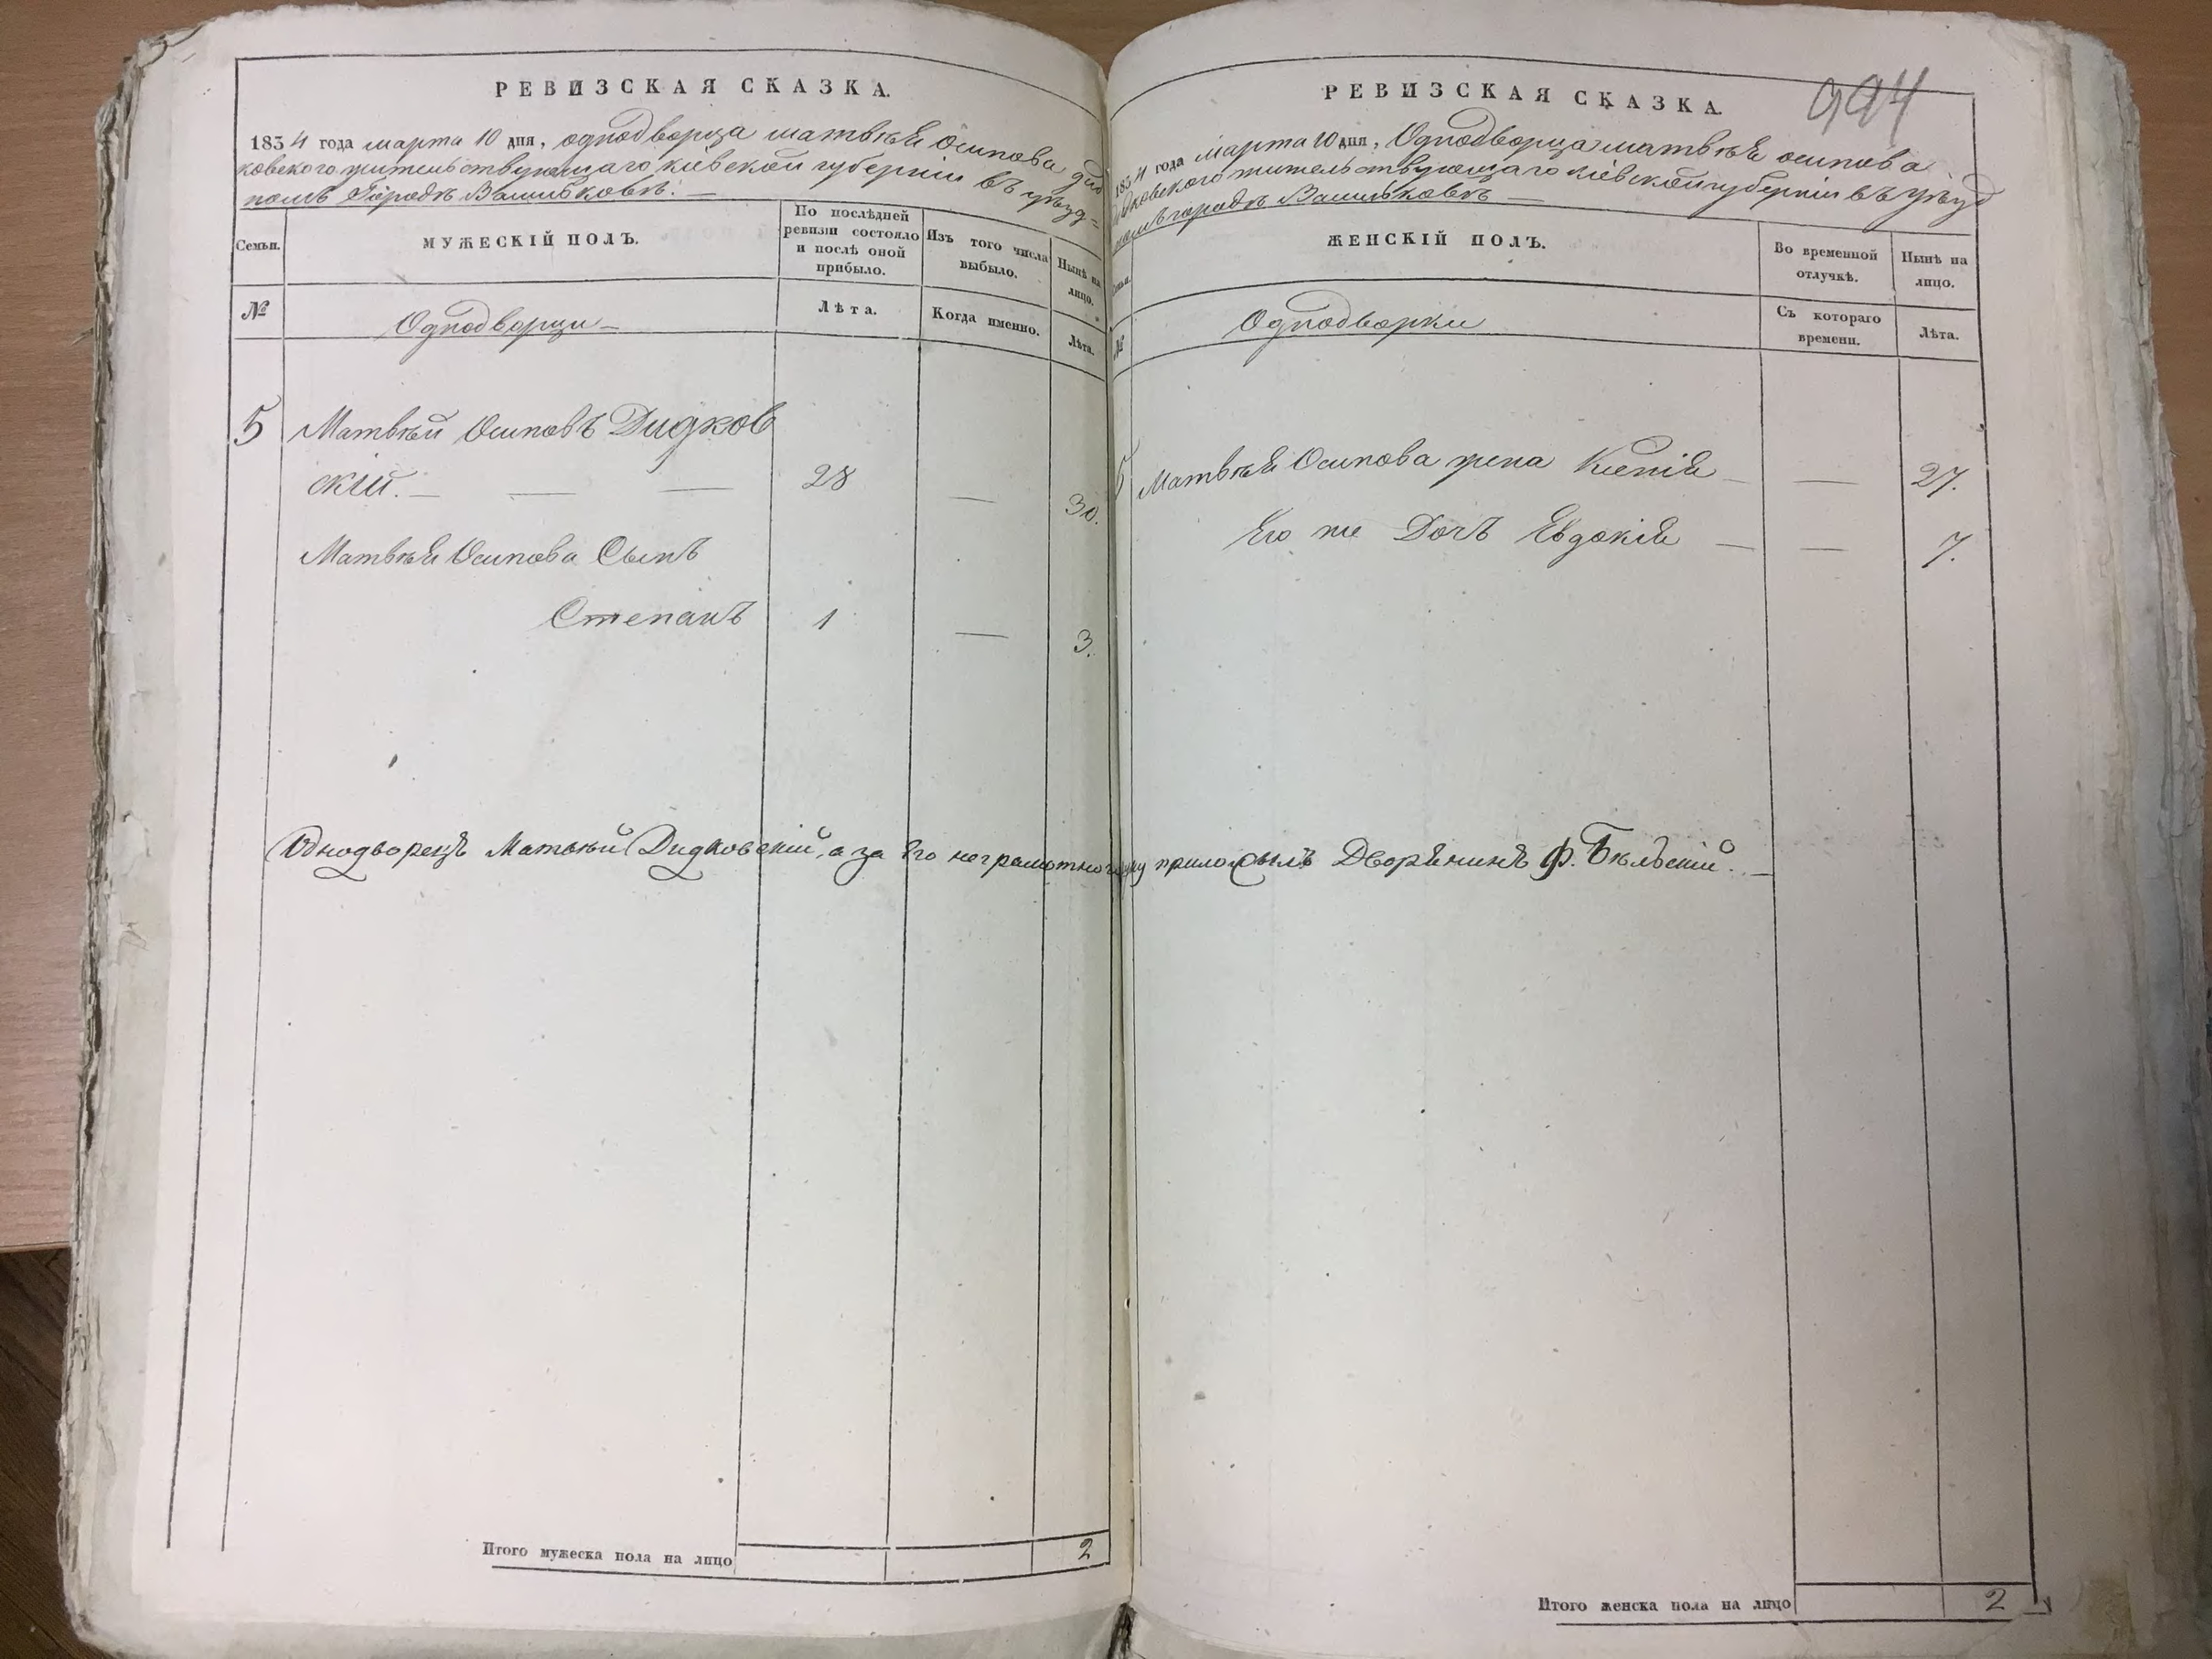 РЕВИЗСКАЯ СКАЗКА.
1834 года марта 10 дня, однодворца матвѣя Осипова Дид
ковского жительствующаго кіевской губерніи въ уѣзд=
номъ Городѣ Василькове: —
Семьи.
МУЖЕСКІЙ ПОЛЪ.
По послѣдней ревизіи состояло и послѣ оной прибыло.
Изъ того числа выбыло.
Нынѣ на лицо.
№
Однодворци —
Лѣта.
Когда именно.
Лѣта.
5 Матвѣй Осиповъ Дидков
скій. — — — 28 — 30.
Матвѣя Осипова Сынъ
Степанъ 1 — 3.
Однодворецъ Матвѣй Дидковскій, а за его неграмотного руку приложылъ Дворянинъ Ф. Бѣльскій. —
Итого мужеска пола на лицо 2
994
РЕВИЗСКАЯ СКАЗКА.
1834 года марта 10 дня, Однодворца матвѣя осипова
Дидковского жительствующаго кіевской губерніи въ уѣзд
номъ городѣ Василькове —
Семьи.
ЖЕНСКІЙ ПОЛЪ.
Во временной отлучкѣ.
Нынѣ на лицо.
№
Однодворки
Съ котораго времени.
Лѣта.
5 Матвѣя Осипова жена Ксенія — — 27.
Его же Дочъ Евдокія — — 7.
Итого женска пола на лицо 2